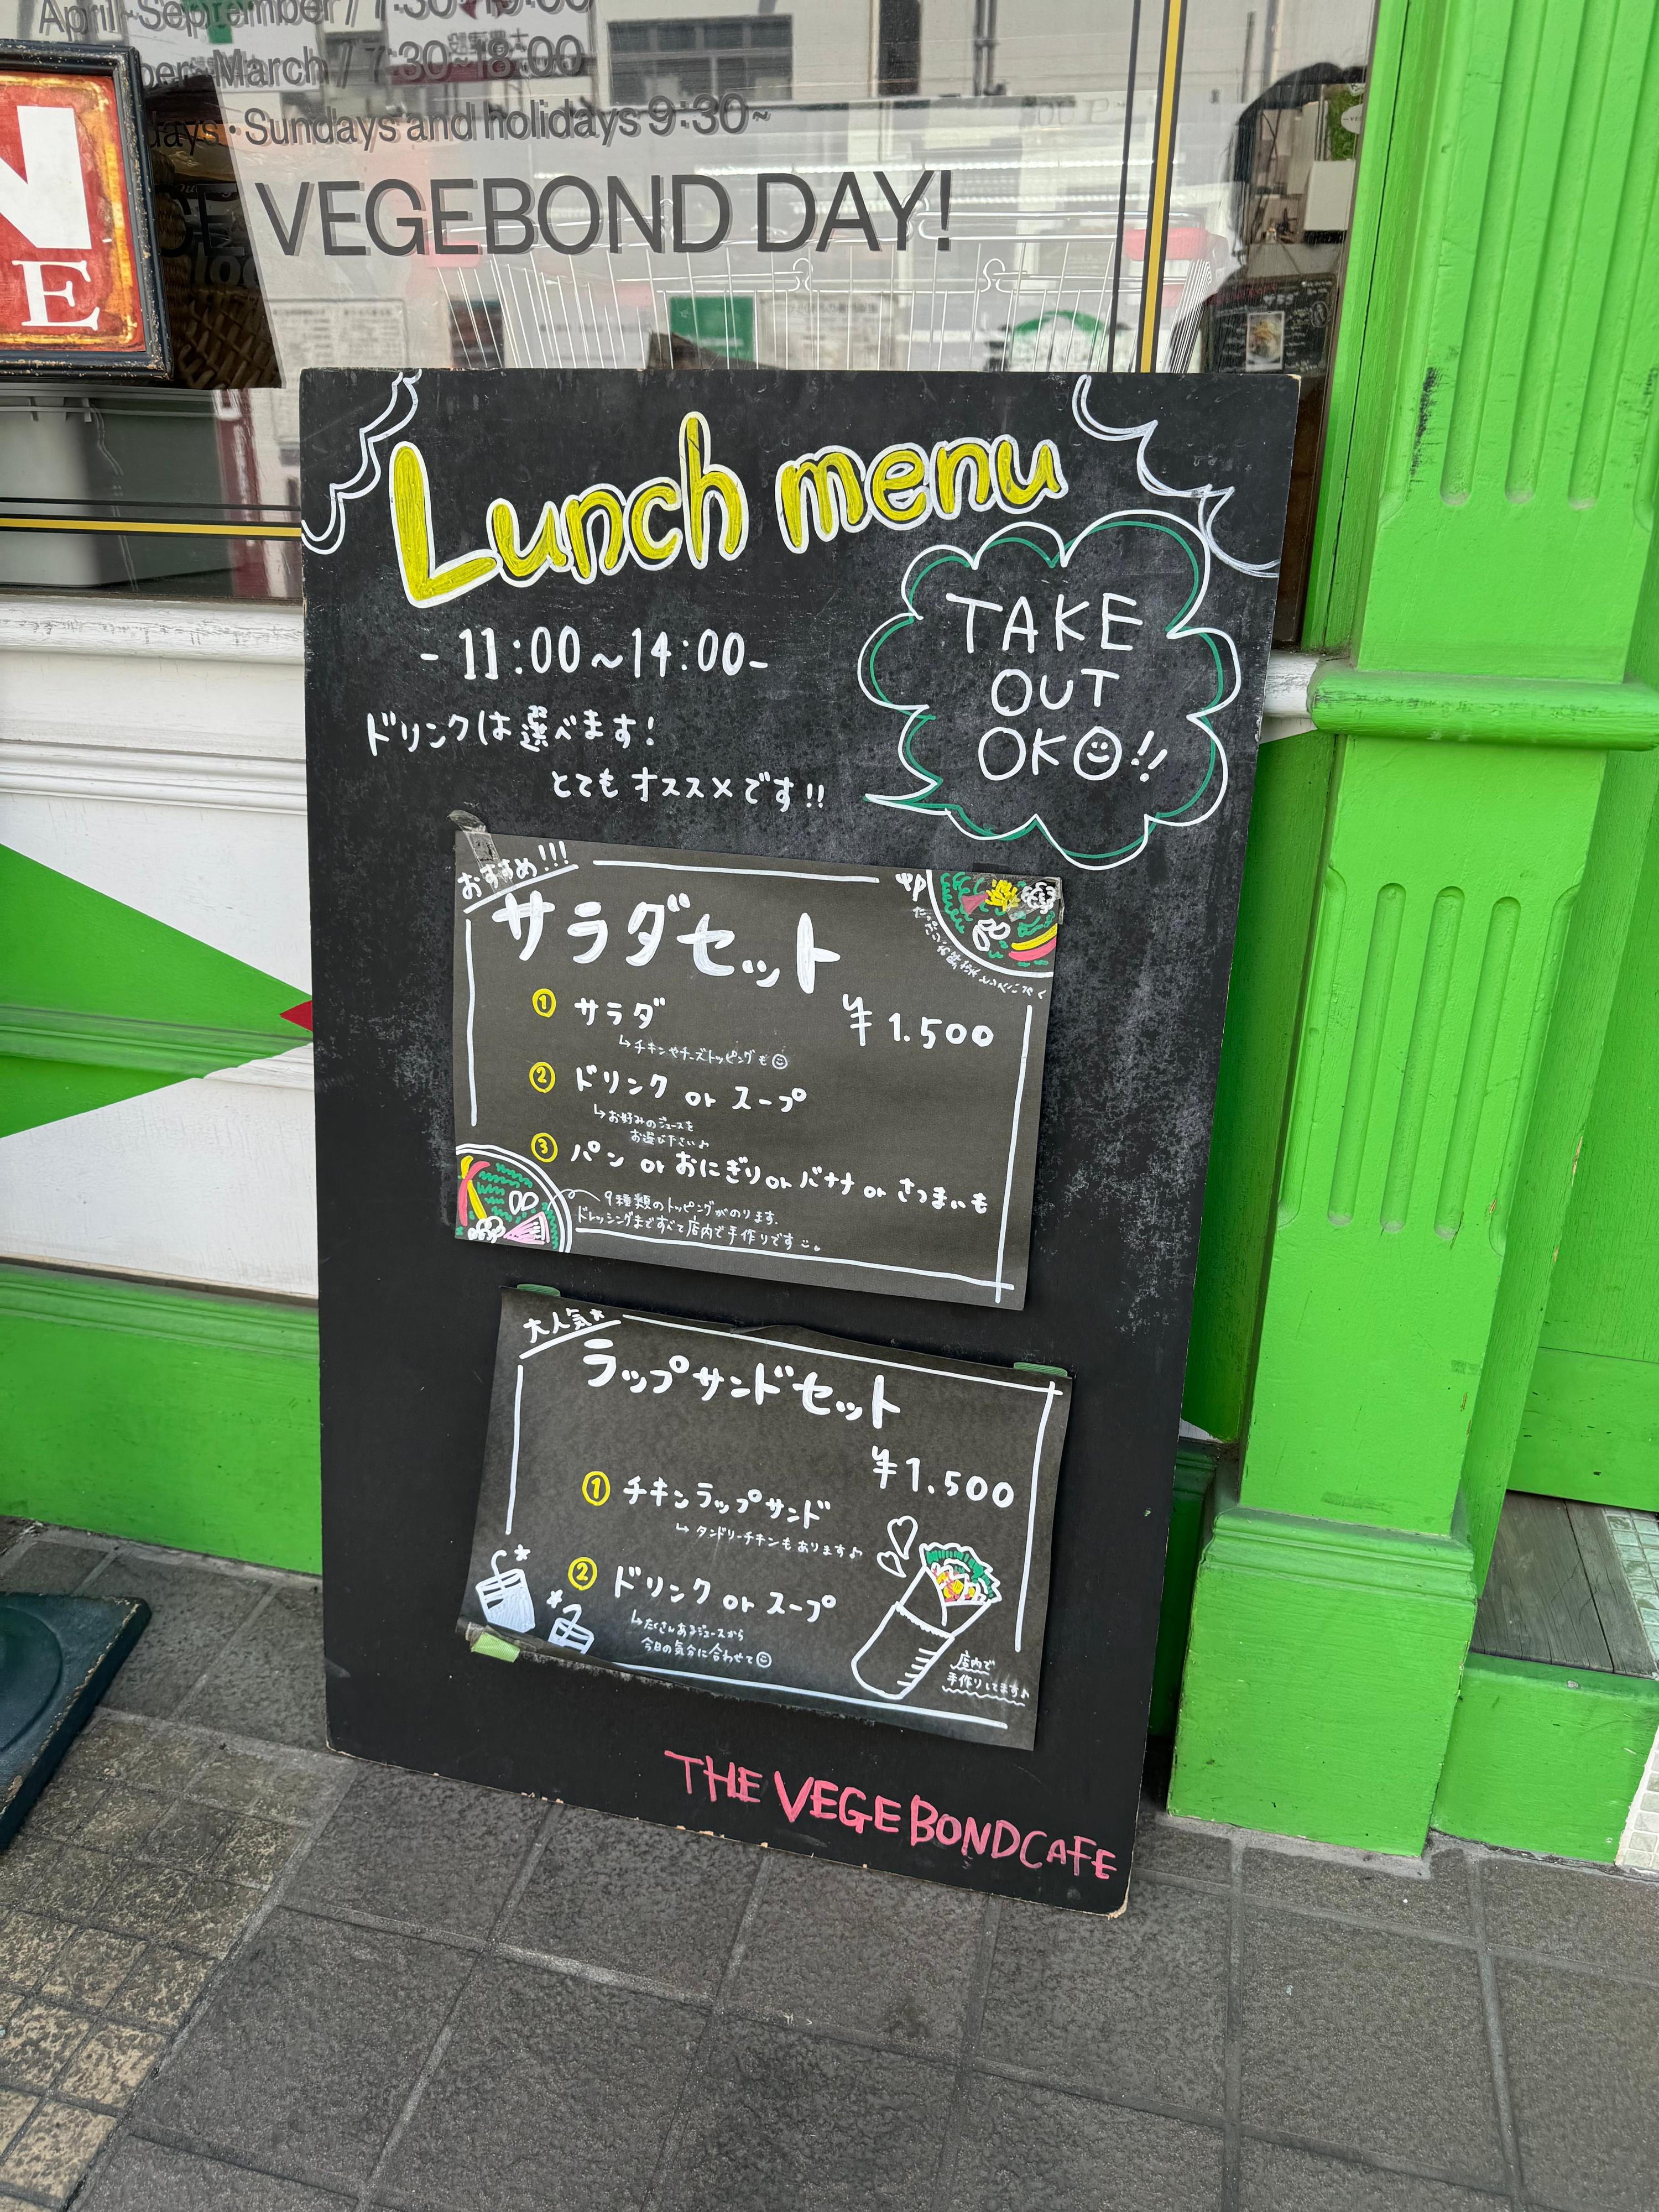 April-September / 7:30-19:00
March / 7:30-18:00
Sundays and holidays 9:30~
VEGEBOND DAY!
N
E
Lunch menu
-11:00～14:00-
ドリンクは選べます!
とても オススメです!!
TAKE
OUT
OK!!
おすすめ!!!
サラダセット
¥1.500
① サラダ
↳チキンやチーズトッピングも
② ドリンク or スープ
↳お好みのジュースを
お選び下さい♪
③ パン or おにぎり or バナナ or さつまいも
9種類のトッピングがのります.
ドレッシングまですべて店内で手作りです
大人気★
ラップサンドセット
¥1.500
① チキンラップサンド
↳タンドリーチキンもあります♪
② ドリンク or スープ
↳たくさんあるジュースから
今日の気分に合わせて
店内で
手作りしてます♪
THE VEGEBONDCAFE